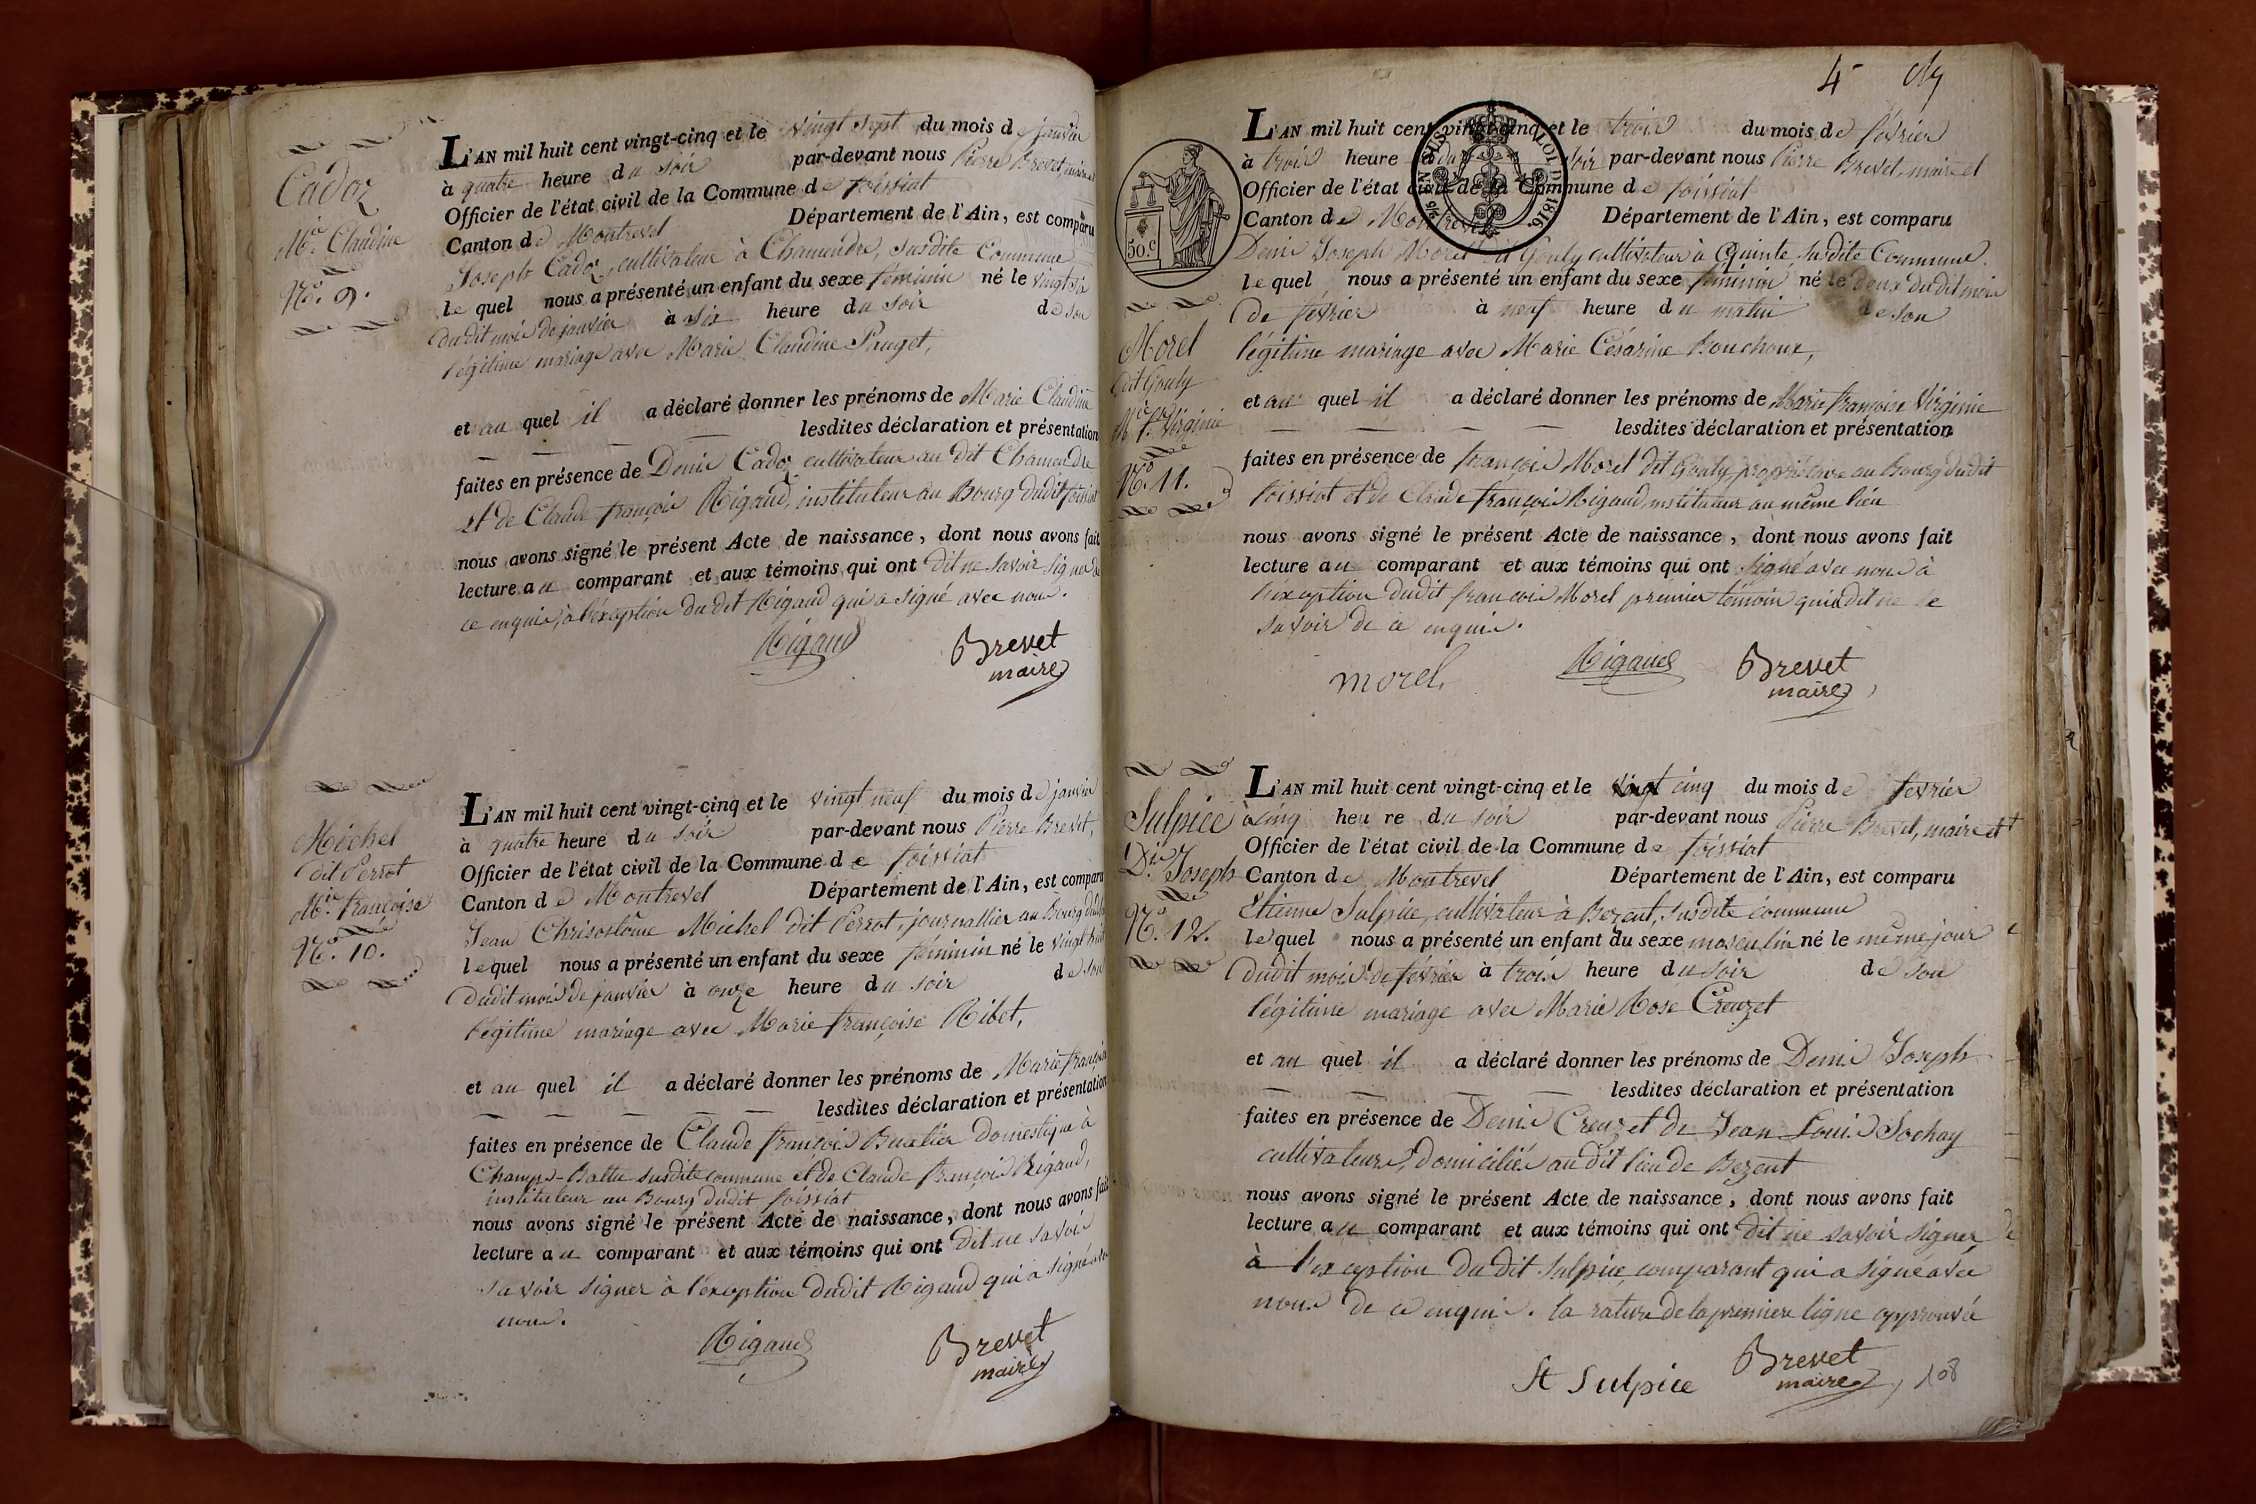 Cadoz
Mie. Claudine
No. 9.
L'AN mil huit cent vingt-cinq et le vingt sept du mois de janvier
à quatre heure du soir par-devant nous Pierre Brevet, maire et
Officier de l'état civil de la Commune de foissiat
Canton de Montrevel Département de l'Ain, est comparu
Joseph Cadoz, cultivateur à Chamandre, susdite Commune
lequel nous a présenté un enfant du sexe féminin né le vingt six
dudit mois de janvier à six heure du soir de son
légitime mariage avec Marie Claudine Pauget,
et au quel il a déclaré donner les prénoms de Marie Claudine
lesdites déclaration et présentation
faites en présence de Denis Cadoz cultivateur au dit Chamandre
et de Claude françois Rigaud, instituteur au Bourg dudit foissiat
nous avons signé le présent Acte de naissance, dont nous avons fait
lecture au comparant et aux témoins qui ont dit ne savoir signer de
ce enquis, à l'exception du dit Rigaud qui a signé avec nous.
Rigaud Brevet
maire
Michel
dit Perrot
Mie. françoise
No. 10.
L'AN mil huit cent vingt-cinq et le vingt neuf du mois de janvier
à quatre heure du soir par-devant nous Pierre Brevet,
Officier de l'état civil de la Commune de foissiat
Canton de Montrevel Département de l'Ain, est comparu
Jean Chrisostôme Michel dit Perrot, journallier au Bourg dudit
lequel nous a présenté un enfant du sexe féminin né le vingt huit
dudit mois de janvier à onze heure du soir de son
légitime mariage avec Marie françoise Ribet,
et au quel il a déclaré donner les prénoms de Marie françoise
lesdites déclaration et présentation
faites en présence de Claude françois Buatier domestique à
Champ-Battu susdite commune et de Claude françois Rigaud,
instituteur au Bourg dudit foissiat
nous avons signé le présent Acte de naissance, dont nous avons fait
lecture au comparant et aux témoins qui ont dit ne savoir
savoir signer à l'exception dudit Rigaud qui a signé avec
nous.
Rigaud Brevet
maire
4
50.c
LOI DE 1816.
Morel
dit Gouly
Mie fse Virginie
No. 11.
L'AN mil huit cent vingt-cinq et le trois du mois de février
à trois heure du soir par-devant nous Pierre Brevet, maire et
Officier de l'état civil de la Commune de foissiat
Canton de Montrevel Département de l'Ain, est comparu
Denis Joseph Morel dit Gouly cultivateur à Quinte susdite Commune
lequel nous a présenté un enfant du sexe féminin né le deux dudit mois
de février à neuf heure du matin de son
légitime mariage avec Marie Césarine Bouchoux,
et au quel il a déclaré donner les prénoms de Marie françoise Virginie
lesdites déclaration et présentation
faites en présence de françois Morel dit Gouly, propriétaire au Bourg dudit
foissiat et de Claude françois Rigaud, instituteur au même lieu
nous avons signé le présent Acte de naissance, dont nous avons fait
lecture au comparant et aux témoins qui ont signé avec nous à
l'exception dudit francois Morel premier témoin qui a dit ne le
savoir de ce enquis.
morel Rigaud Brevet
maire
Sulpice
Dis. Joseph
No. 12.
L'AN mil huit cent vingt-cinq et le vingt cinq du mois de fevrier
à cinq heure du soir par-devant nous Pierre Brevet, maire et
Officier de l'état civil de la Commune de foissiat
Canton de Montrevel Département de l'Ain, est comparu
Etienne Sulpice, cultivateur à Bezent, susdite commune
lequel nous a présenté un enfant du sexe masculin né le même jour
dudit mois de février à trois heure du soir de son
légitime mariage avec Marie Rose Creuzet
et au quel il a déclaré donner les prénoms de Denis Joseph
lesdites déclaration et présentation
faites en présence de Denis Creuzet de Jean Louis Sochay
cultivateurs, domiciliés au dit lieu de Bezent
nous avons signé le présent Acte de naissance, dont nous avons fait
lecture au comparant et aux témoins qui ont dit ne savoir signer
à l'exception dudit Sulpice comparant qui a signé avec
nous de ce enquis. la rature de la premiere ligne approuvée
St Sulpice Brevet
maire 108